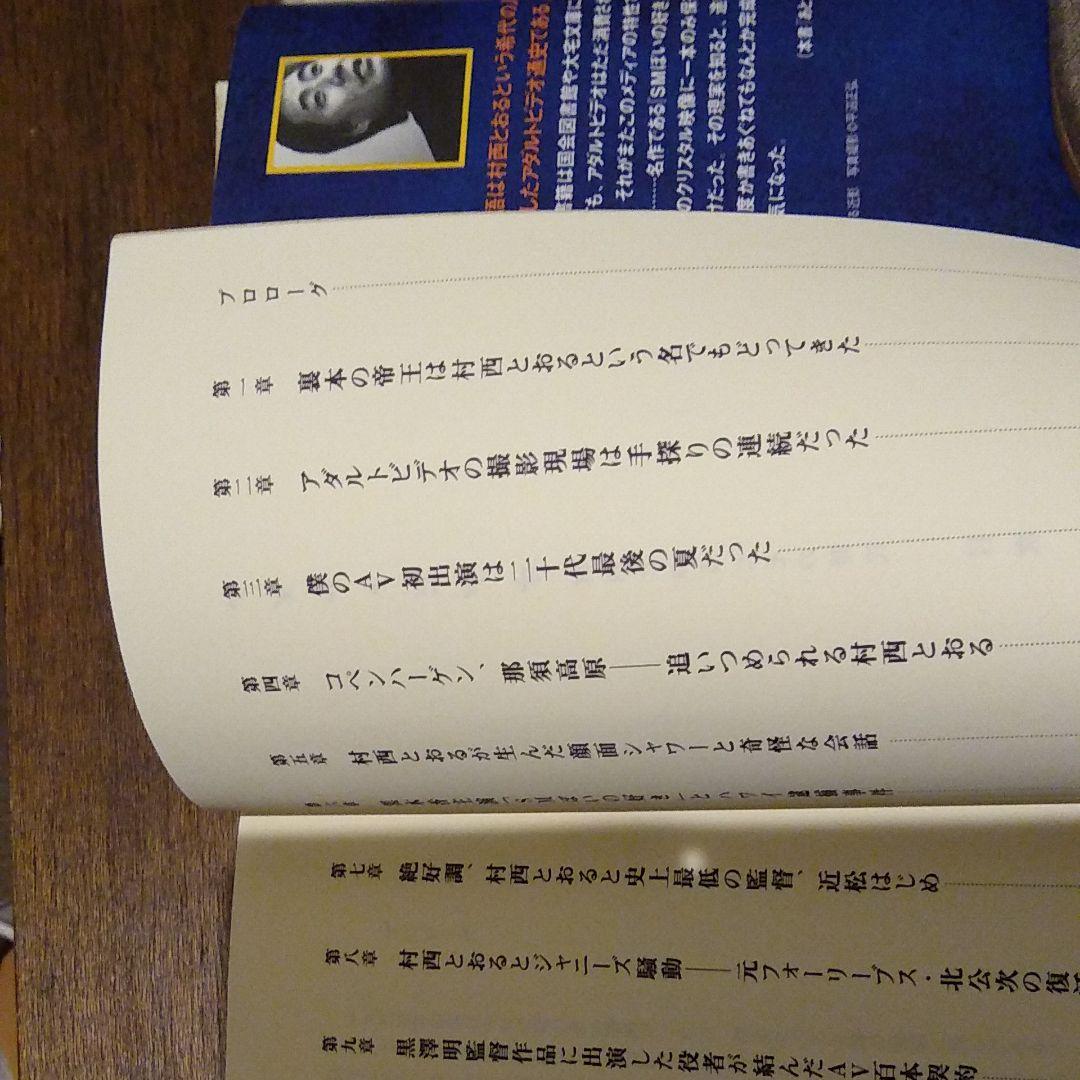 語は村西とおるという希代の
したアダルトビデオ通史である
書籍は国会図書館や大宅文庫に
も、アダルトビデオはただ消費さ
それがまたこのメディアの特性
……名作である「SMぽいの好き
のクリスタル映像に一本のみ保
けだった。その現実を知ると、途
度か書きあぐねてもなんとか完成
気になった。
(本書 あと
プロローグ
第一章 裏本の帝王は村西とおるという名でもどってきた
第二章 アダルトビデオの撮影現場は手探りの連続だった
第三章 僕のAV初出演は二十代最後の夏だった
第四章 コペンハーゲン、那須高原――追いつめられる村西とおる
第五章 村西とおるが生んだ顔面シャワーと奇怪な会話
第七章 絶好調、村西とおると史上最低の監督、近松はじめ
第八章 村西とおるとジャニーズ騒動――元フォーリーブス・北公次の復活
第九章 黒澤明監督作品に出演した役者が結んだAV百本契約